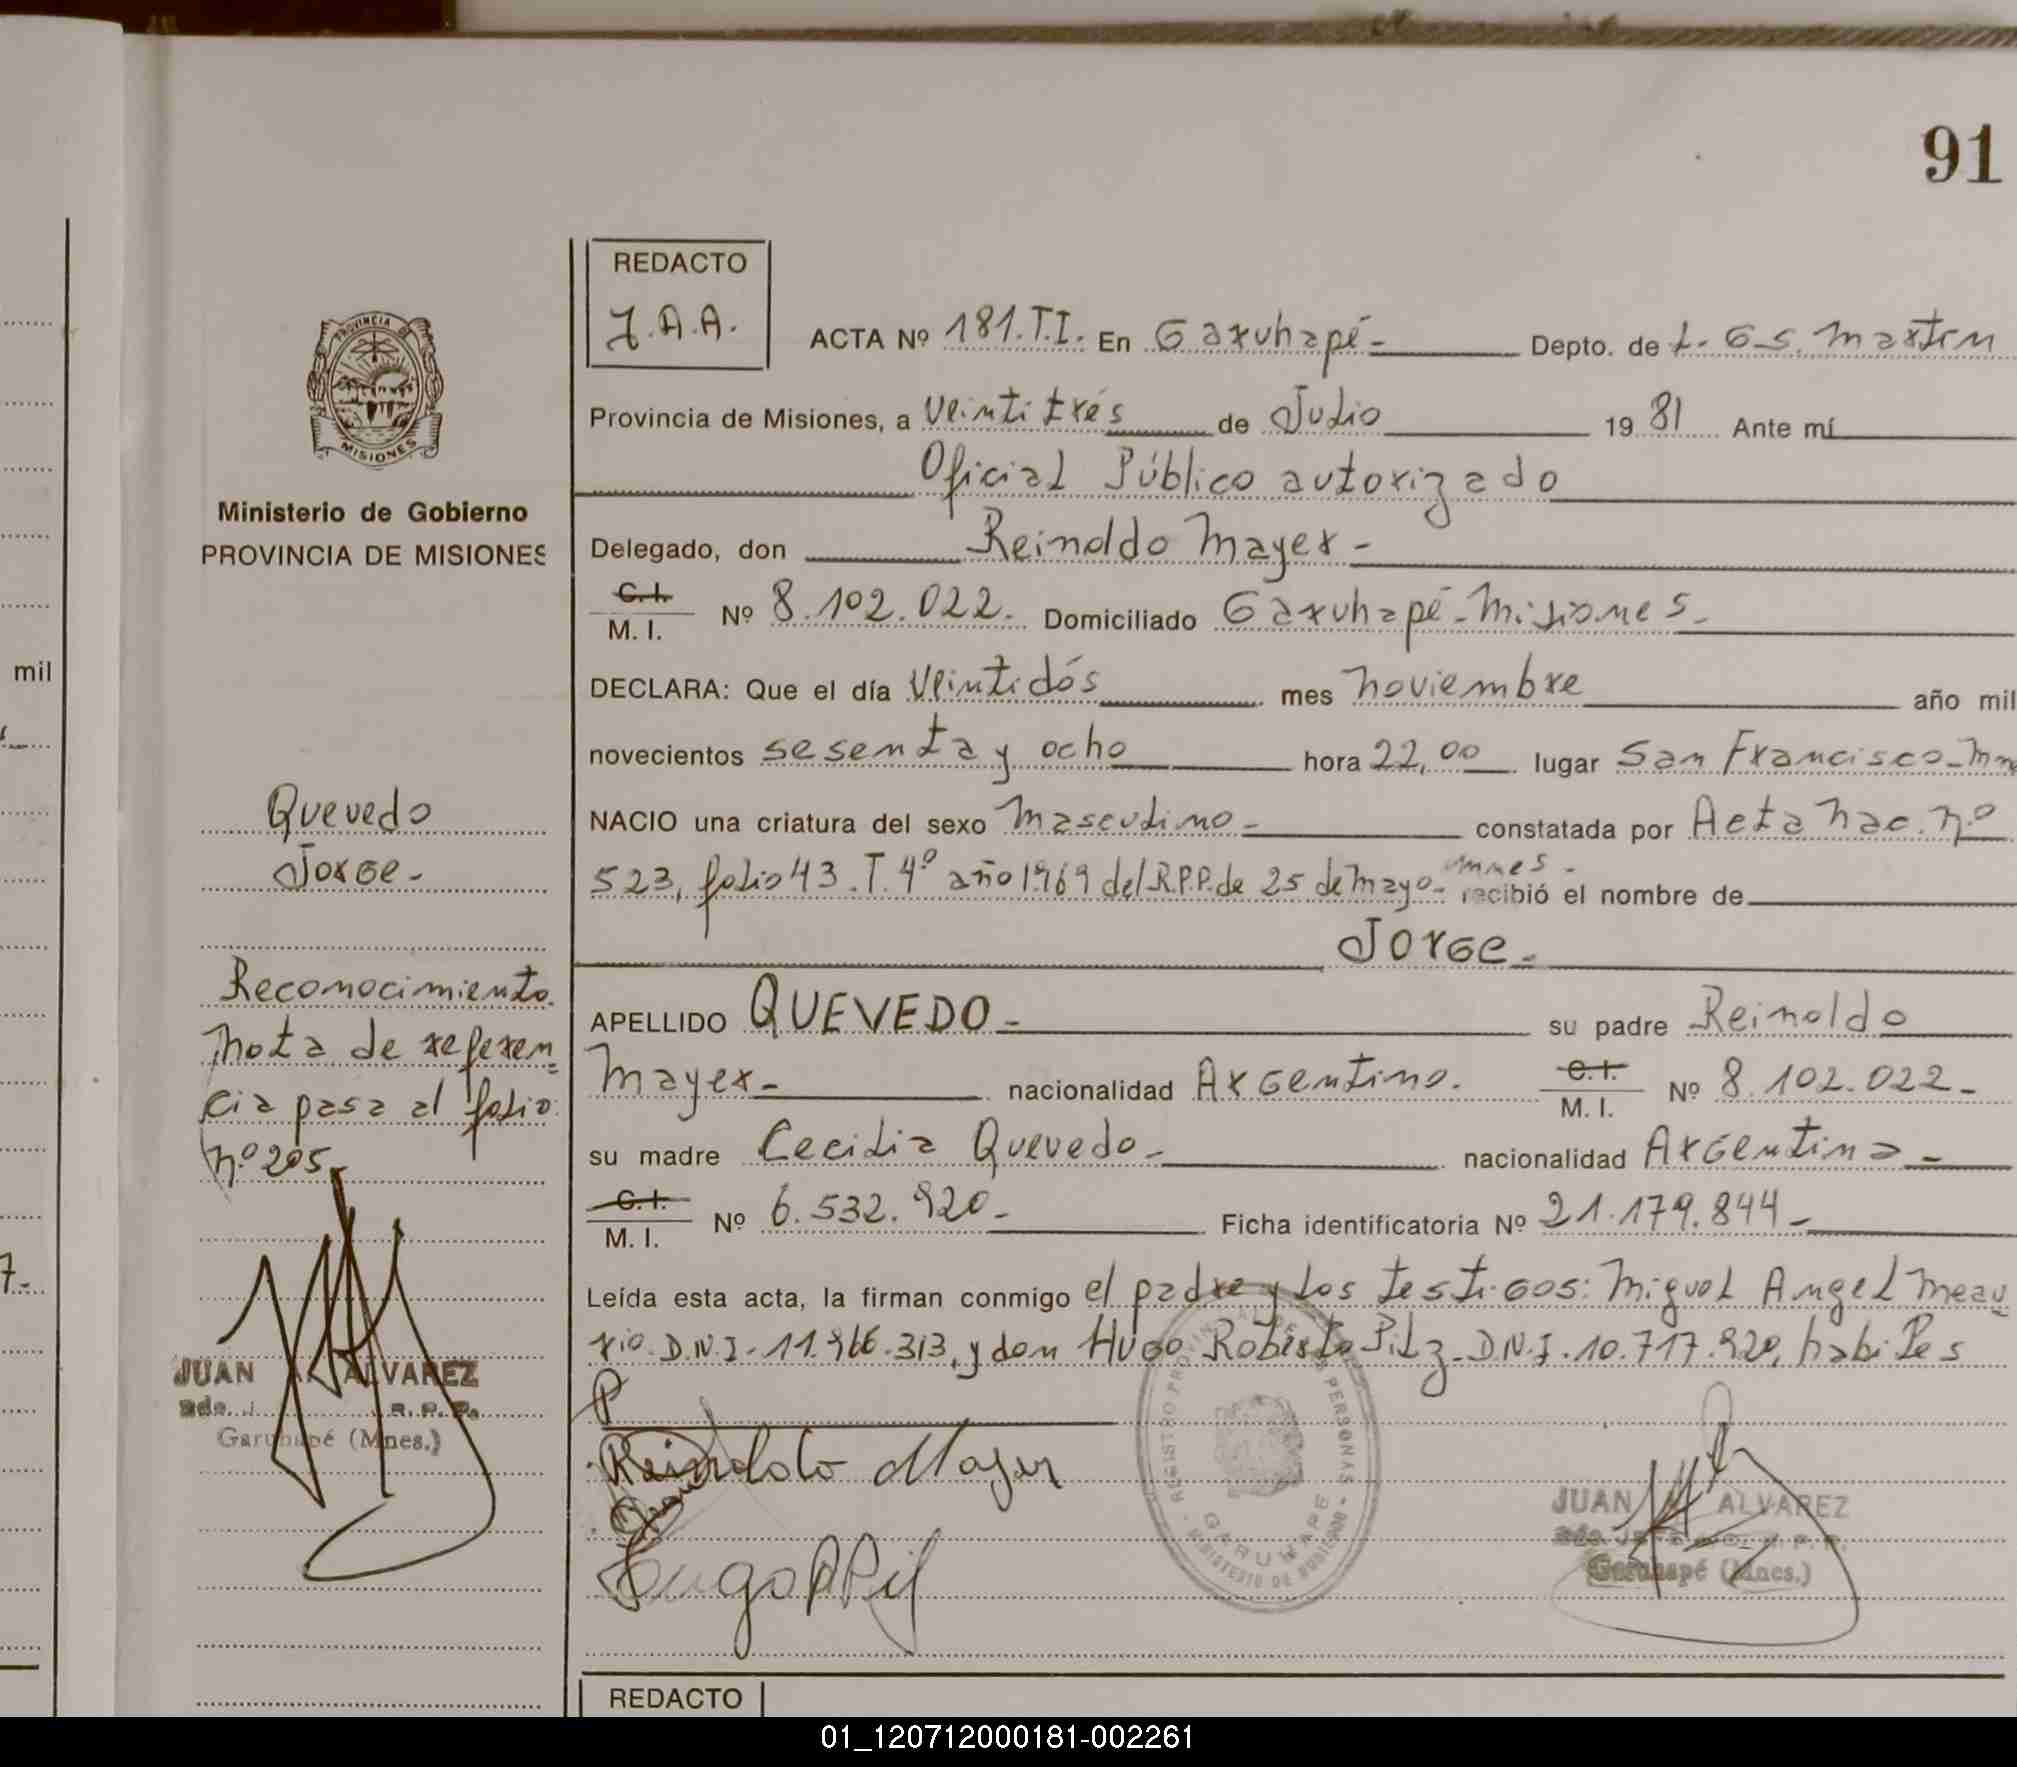 91
REDACTO
J.A.A.
ACTA Nº 181.T.I. En Garuhapé- Depto. de L. G. S. Martín
Provincia de Misiones, a Veintitrés de Julio 19 81 Ante mí
Oficial Público autorizado
Delegado, don Reinoldo Mayer-
C.I. M.I. Nº 8.102.022. Domiciliado Garuhapé-Misiones-
DECLARA: Que el día Veintidós mes noviembre año mil
novecientos sesenta y ocho hora 22,00 lugar San Francisco-Mn
NACIO una criatura del sexo Masculino- constatada por Acta nac. nº
523, folio 43. T. 4º año 1969 del R.P.P. de 25 de Mayo- Mnes- recibió el nombre de
Jorge-
APELLIDO QUEVEDO- su padre Reinoldo
Mayer- nacionalidad Argentino. C.I. M.I. Nº 8.102.022-
su madre Cecilia Quevedo- nacionalidad Argentina-
C.I. M.I. Nº 6.532.920- Ficha identificatoria Nº 21.179.844-
Leída esta acta, la firman conmigo el padre y los testigos: Miguel Angel Meau
rio. D.N.I. 11.966.313, y don Hugo Roberto Pilz. D.N.I. 10.717.920, habiles
Reinoldo Mayer
REGISTRO PROVINCIAL DE LAS PERSONAS
GARUHAPE
MINISTERIO DE GOBIERNO
JUAN ALVAREZ
Garuhapé (Mnes.)
PROVINCIA DE
MISIONES
Ministerio de Gobierno
PROVINCIA DE MISIONES
Quevedo
Jorge-
Reconocimiento.
Nota de referen
cia pasa al folio
nº 205
JUAN A. ALVAREZ
R. P. P.
Garuhapé (Mnes.)
mil
7-
REDACTO
01_120712000181-002261